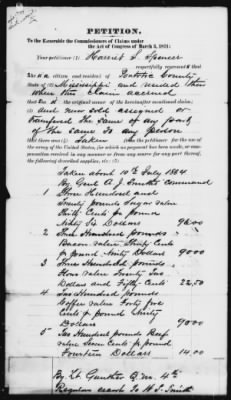 PETITION.
To the Honorable the Commissioners of Claims under
the Act of Congress of March 3, 1871:
Your petitioner: Harriet S. Spencer
respectfully represents that
is a citizen and resident of Pontotoc County
State of Mississippi and resided there
when this claim accrued
that is the original owner of the hereinafter mentioned claim;
and never sold assigned or
transfered the same or any part
of the same to any person
that there was Taken from the petitioner for the use of
the army of the United States, for which no payment has been made, or compensation received in any manner or from any source for any part thereof, the
following described supplies, viz:
Taken about 10th July 1864
By Genl A. J. Smiths Command
1 Three Hundred and
Twenty pounds Sugar value
Thirty Cents pr pound
Ninty Six Dollars 96.00
2 Three Hundred pounds
Bacon value Thirty Cents
pr pound Ninty Dollars 90.00
3 Three Hundred pounds
Flour value Twenty Two
Dollars and Fifty Cents 22.50
4 Two Hundred pounds
Coffee value Forty five
Cents pr pound Ninty
Dollars 90.00
5 Two Hundred pounds Beef
value Seven Cents pr pound
Fourteen Dollars 14.00
By Lt Q.M. 4th
Regular